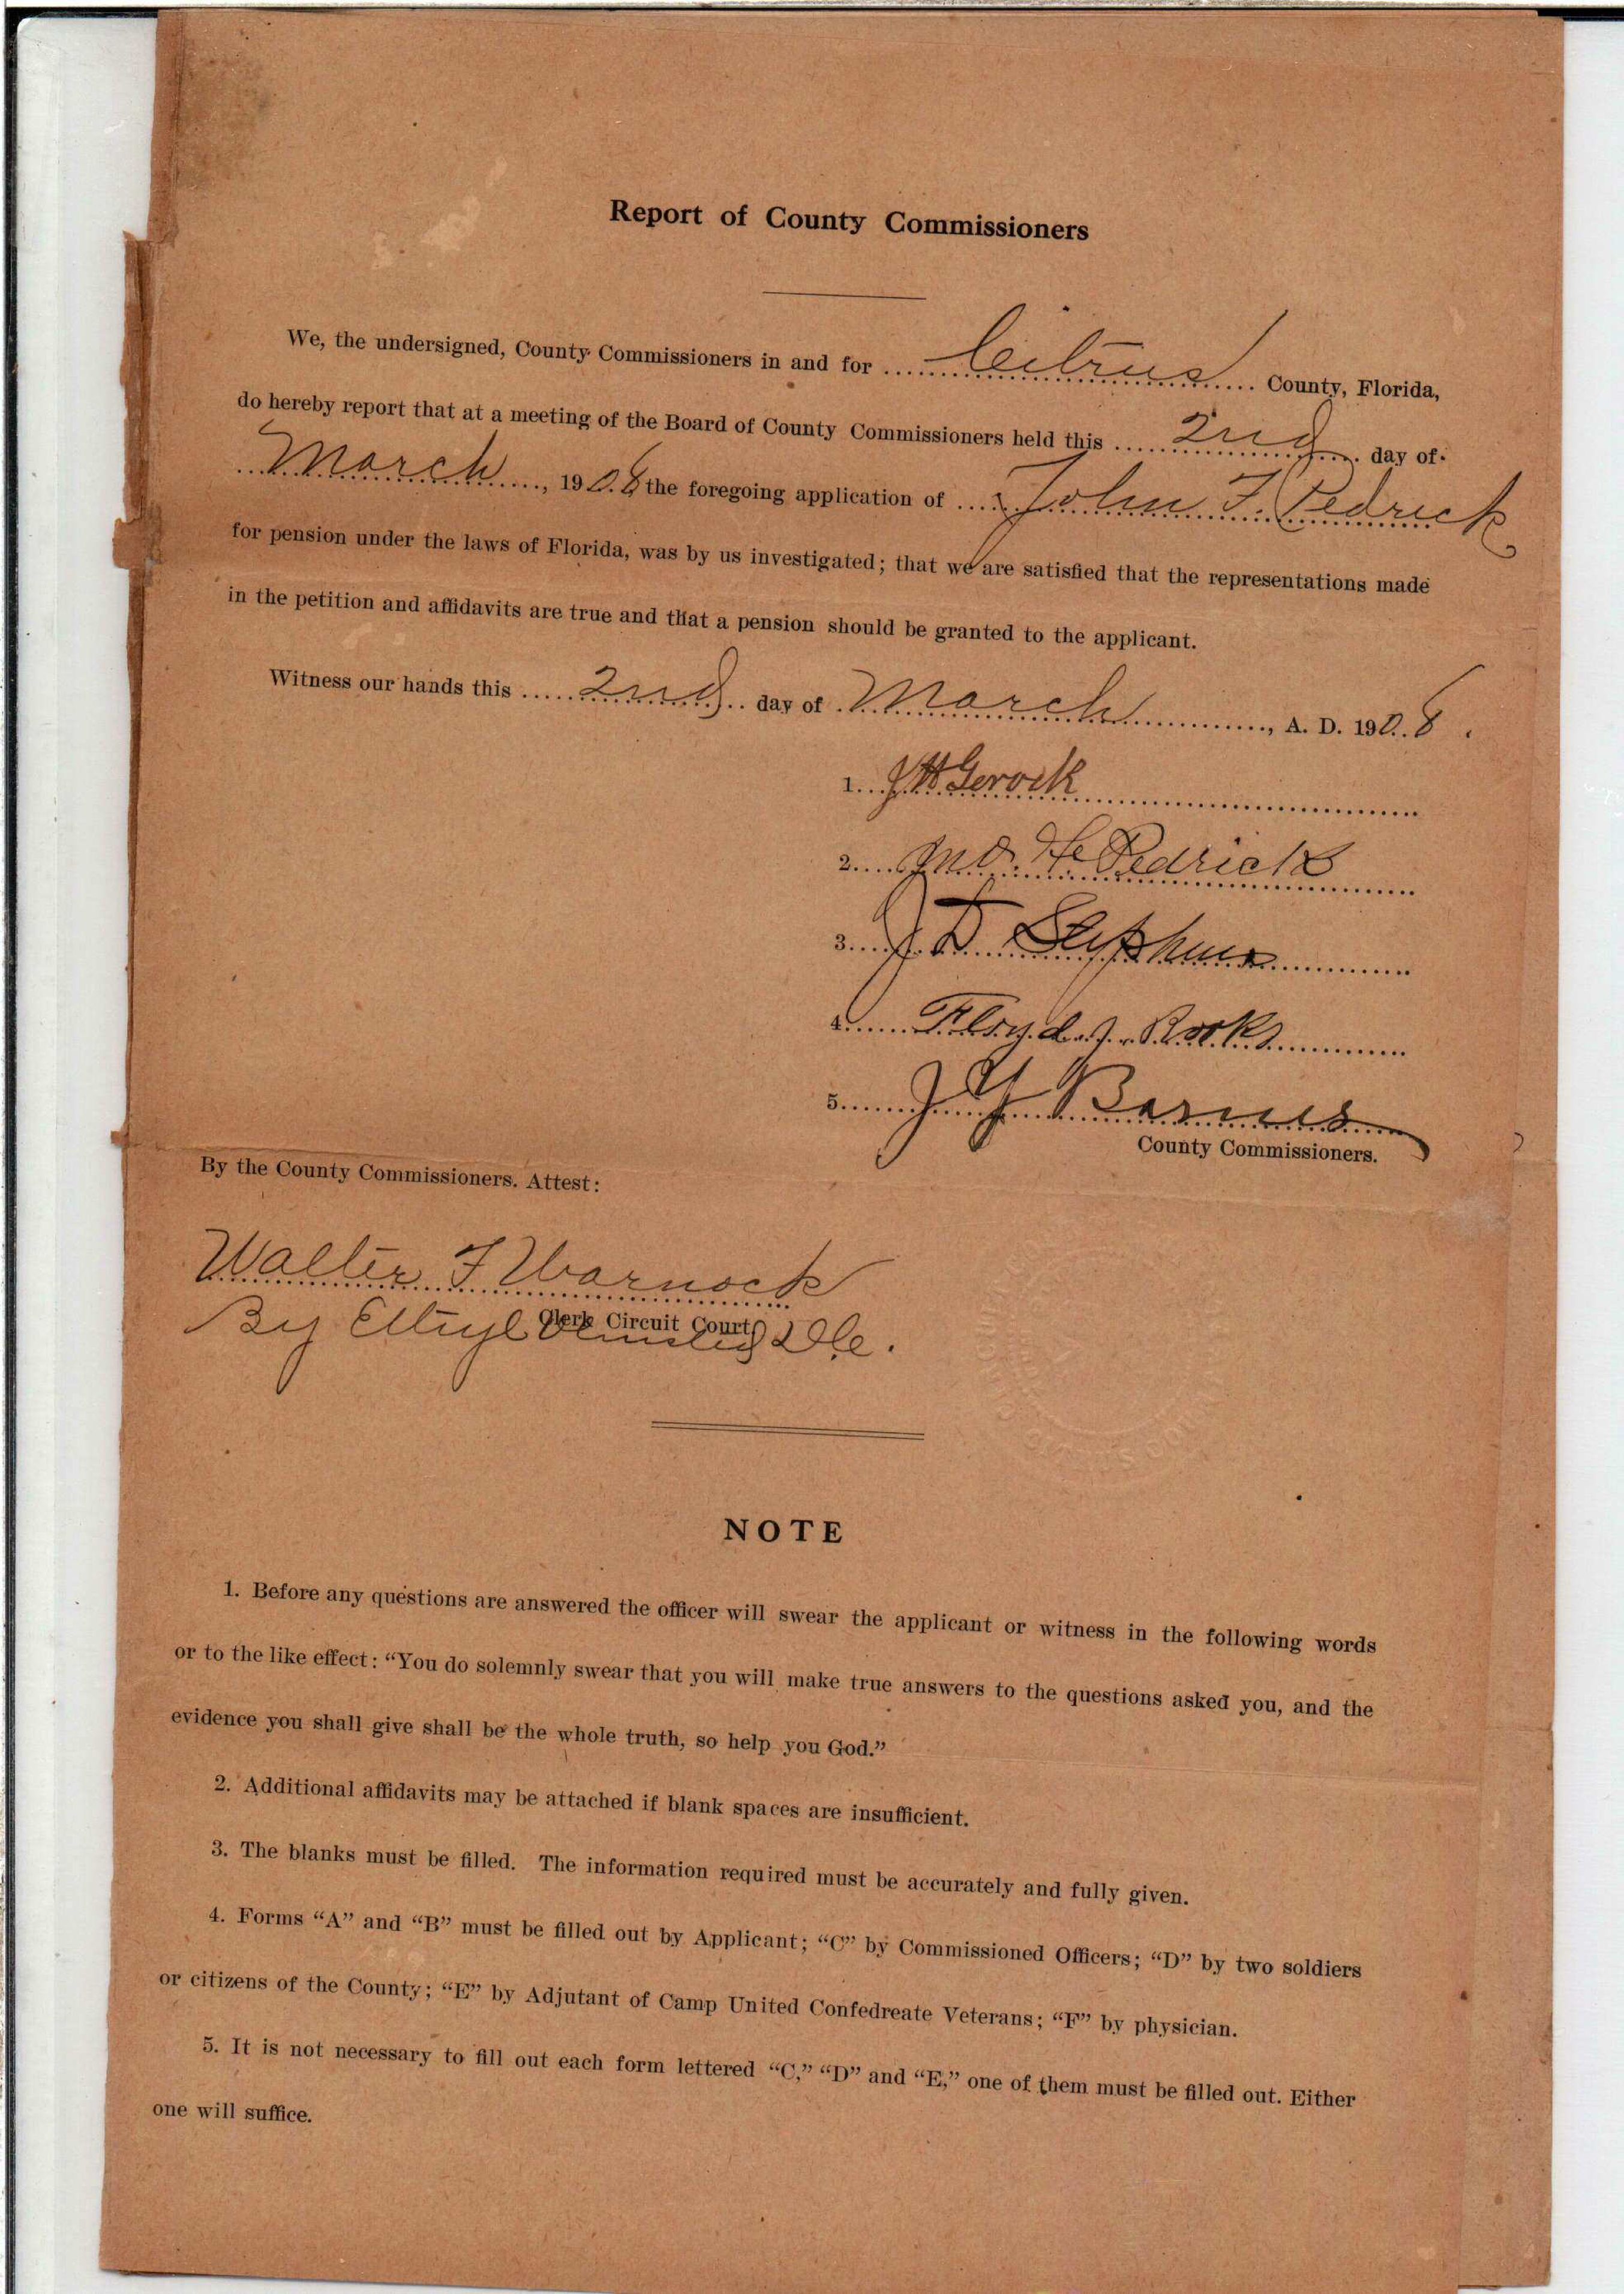 Report of County Commissioners
We, the undersigned, County Commissioners in and for Citrus County, Florida,
do hereby report that at a meeting of the Board of County Commissioners held this 2nd day of
March, 1908 the foregoing application of John F. Pedrick
for pension under the laws of Florida, was by us investigated; that we are satisfied that the representations made
in the petition and affidavits are true and that a pension should be granted to the applicant.
Witness our hands this 2nd day of March, A. D. 1908.
1. J H Gerock
2. Jno. H Pedrick
3. J D Stephens
4. Floyd J. Rooks
5. J Y Barnes
County Commissioners.
By the County Commissioners. Attest:
Walter F Warnock
Clerk Circuit Court
By D.C.
NOTE
1. Before any questions are answered the officer will swear the applicant or witness in the following words
or to the like effect: “You do solemnly swear that you will make true answers to the questions asked you, and the
evidence you shall give shall be the whole truth, so help you God.”
2. Additional affidavits may be attached if blank spaces are insufficient.
3. The blanks must be filled. The information required must be accurately and fully given.
4. Forms “A” and “B” must be filled out by Applicant; “C” by Commissioned Officers; “D” by two soldiers
or citizens of the County; “E” by Adjutant of Camp United Confedreate Veterans; “F” by physician.
5. It is not necessary to fill out each form lettered “C,” “D” and “E,” one of them must be filled out. Either
one will suffice.